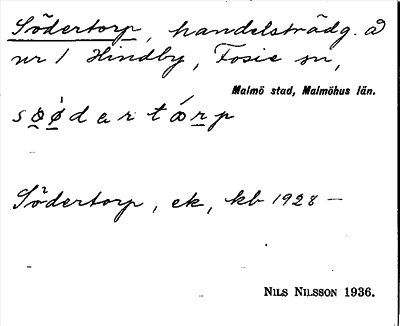 Södertorp, handelsträdg. å
nr 1 Hindby, Fosie sn,
Malmö stad, Malmöhus län.
Södertorp, ek, kb 1928 –
NILS NILSSON 1936.